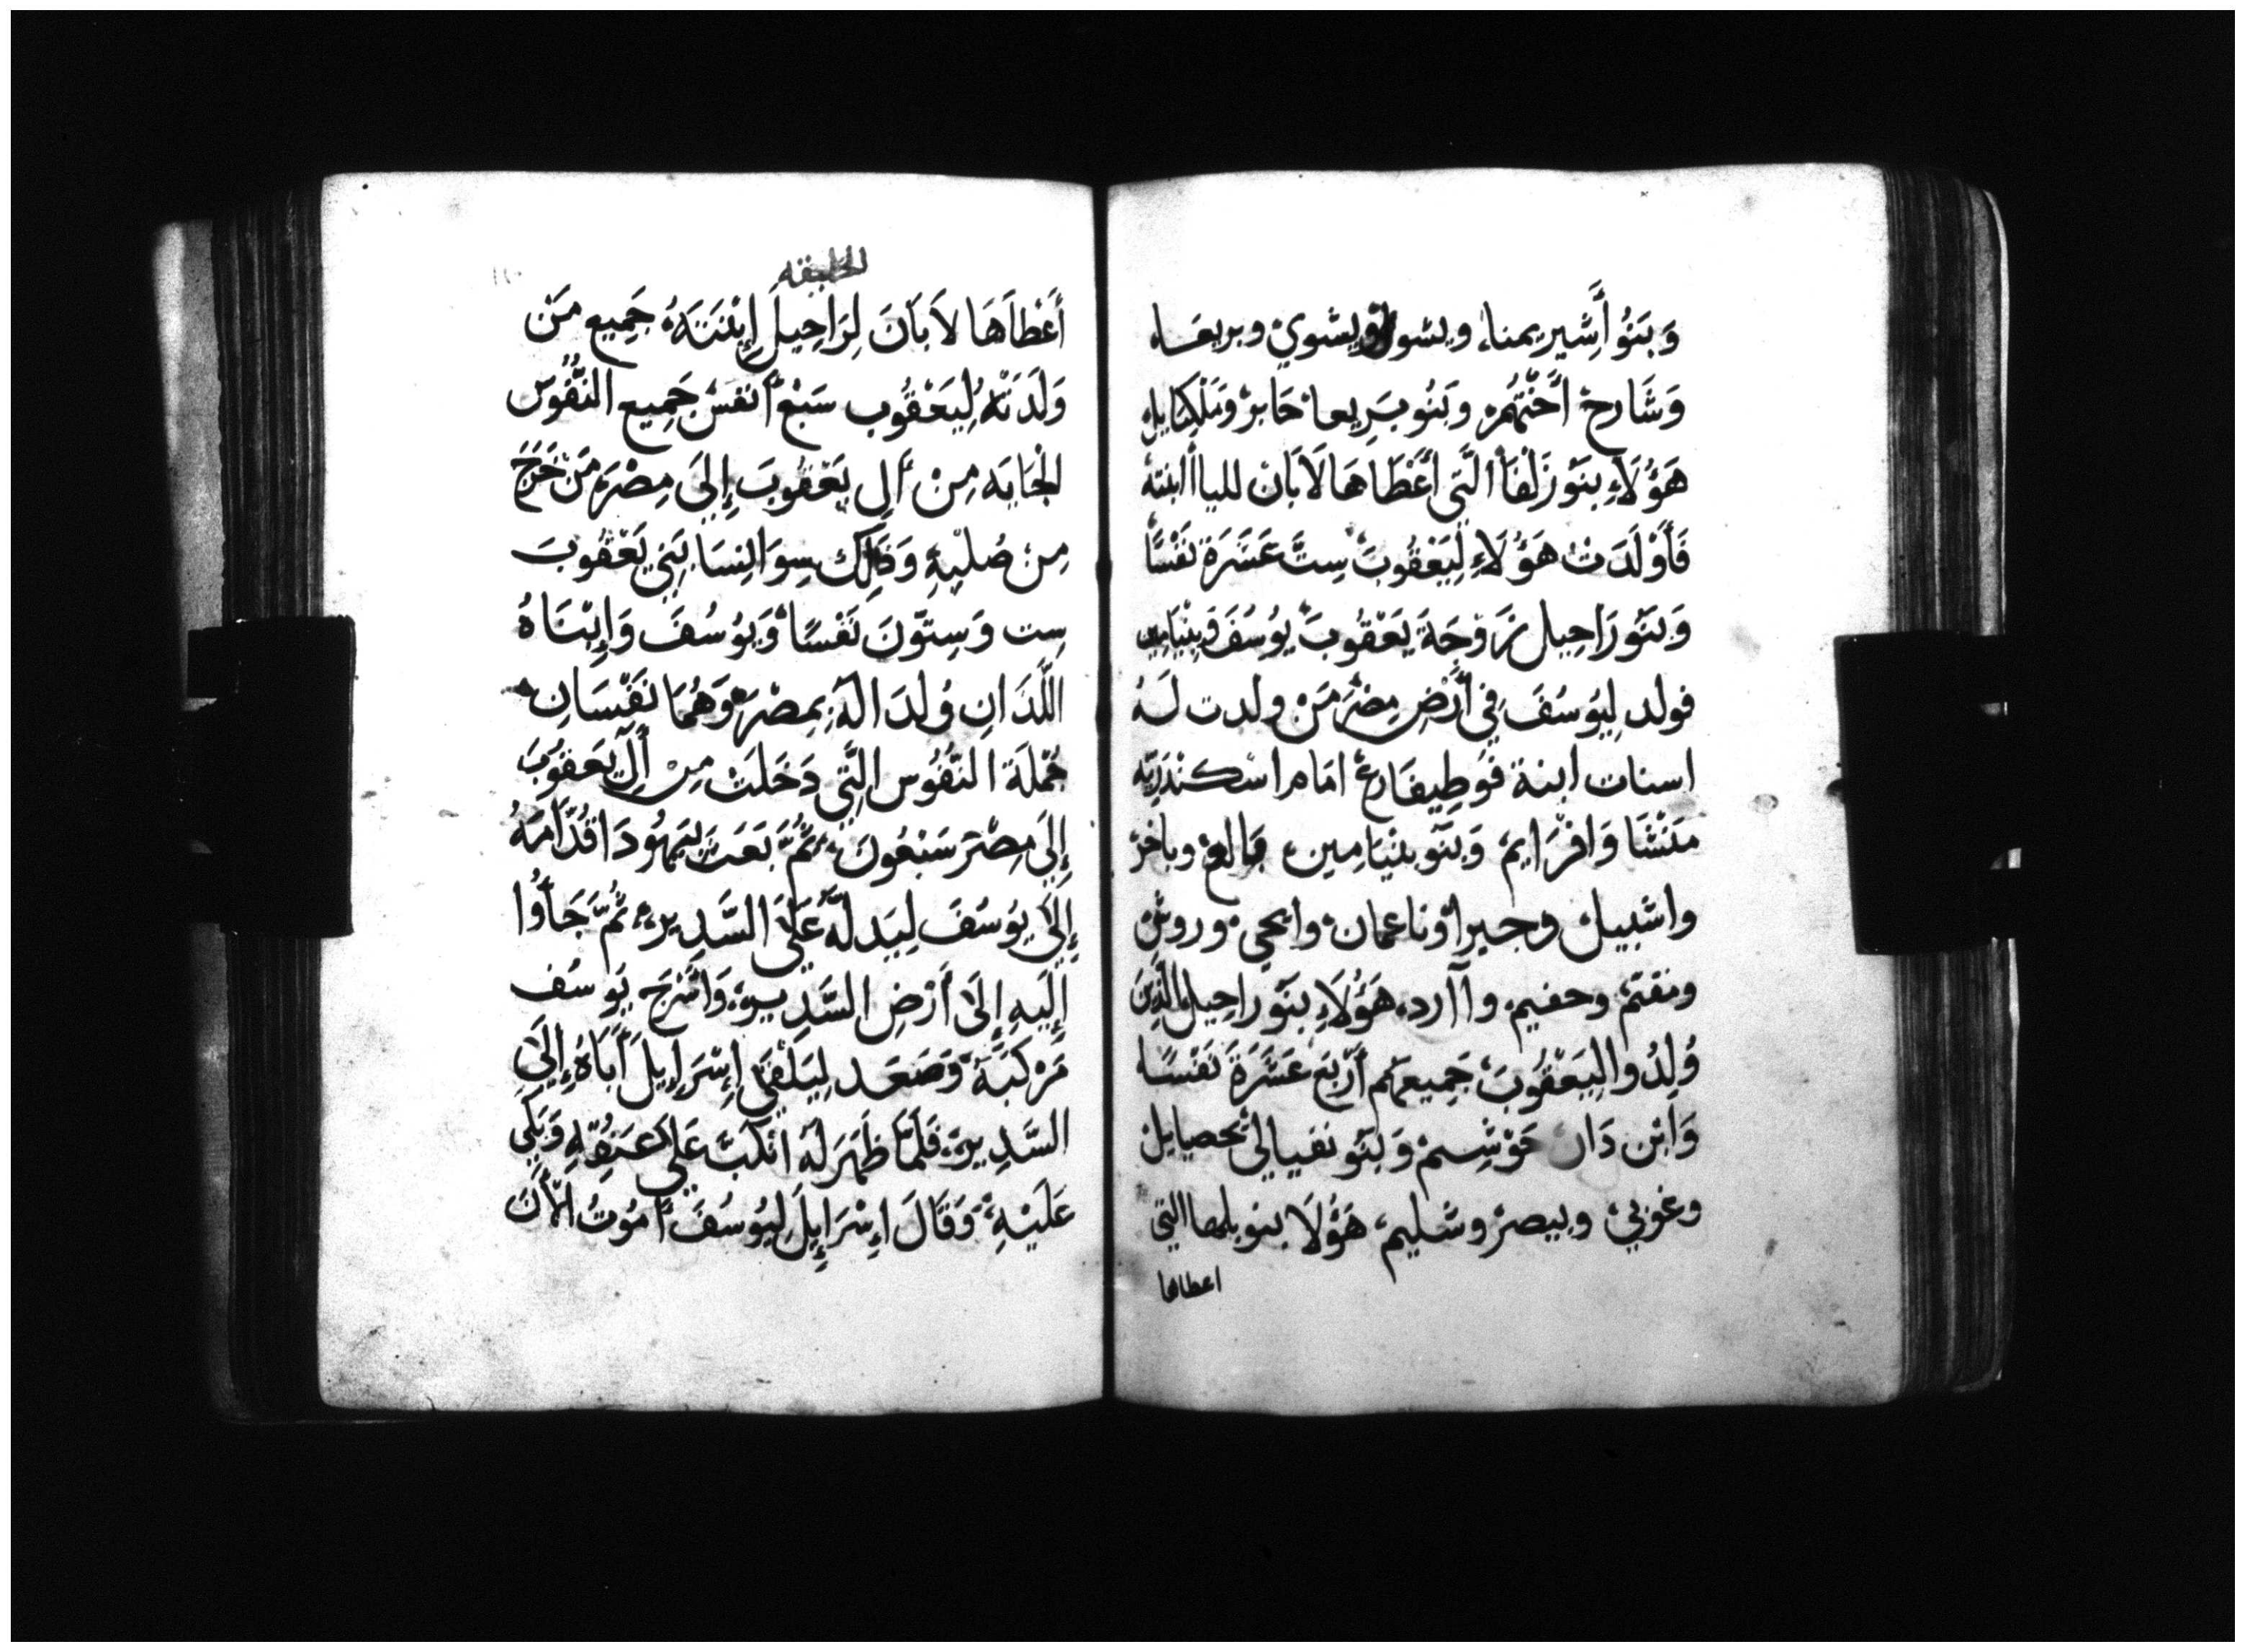 وَبَنُو أَشِير يمنا، ويشوا ويشوي وبريعا،
وَشَارخ أُخْتُهُمْ وَبَنُو بَرِيعا حَابر وَمَلْكِيايل
هَؤُلَاءِ بَنَو زَلْفَا الَّتِي أَعْطَاهَا لَابَان لليا ابنته
فَأَوْلَدَتْ هَؤُلَاءِ لِيَعْقُوبَ سِتَّ عَشَرَةَ نَفْسًا
وَبَنَو رَاحِيل زَوجَةَ يَعْقُوبَ يُوسَفَ وَبِنْيَامِين
فولد لِيُوسَفَ فِي أَرْضِ مِصْرَ مَنْ ولدت لَهُ
اسنات ابنة فَوطِيفَارع امَام اسْكندَرِيَّه
مَنَشَّا وَافْرَايم وَبَنَو بنْيَامِين بالع وباخر
واشبيل وجيرا وناعمان وايحي وروش
ومفتم وحفيم وآارد، هَؤُلَاءِ بَنَو راحِيل الَّذِينَ
وُلِدُوا لِيَعْقُوبَ جَمِيعهُم أَرْبَع عَشَرَةَ نَفْسًا
وَابْن دَان حَوْشِيم وَبَنَو نفيالي يحصيايل
وغوني وبيصر وشليم، هَؤُلَا بنو بلها التي
اعطاها
الخليقه
أَعْطَاهَا لَابَانَ لِرَاحِيلَ إِبْنَتَهُ جَمِيع مَنْ
وَلَدَتْهُ لِيَعْقُوب سَبْع أَنفس جَمِيع النُّفُوس
الْجَايَه مِنْ آلِ يَعْقُوبَ إِلَى مِصْرَ مَنْ خَرَجَ
مِنْ صُلْبِهِ وَذَالِكَ سِوَا نِسَا بَنِي يَعْقُوبَ
سِت وَسِتّونَ نَفْسًا وَيُوسُفَ وَإِبْنَاهُ
اللَّذَانِ وُلِدَا لَهُ بِمِصْرَ وَهُمَا نَفْسَانِ
جُمْلَة النُّفُوس الَّتِي دَخَلَتْ مِنْ آلِ يَعقُوبَ
إِلَى مِصْرَ سَبْعُونَ ثُمَّ بَعَثَ بِيَهُودَا قُدَّامَهُ
إِلَى يُوسَفَ لِيَدلَّهُ عَلَى السَّدِير ثُمَّ جَأَوُا
إِلَيهِ إِلَى أَرْضِ السَّدِير، وَأَسْرَجَ يُوسُف
مَرْكَبَهُ وَصَعَد لِيَلْقَى إِسْرَايِلَ أَبَاهُ إِلَى
السَّدِير، فَلَمَّا ظَهَرَ لَهُ انْكَبَّ عَلَى عَنُقِهِ وَبَكَى
عَلَيْهِ، وَقَالَ إِسْرَايِلَ لِيُوسُفَ أَمُوتُ الْأَنَ